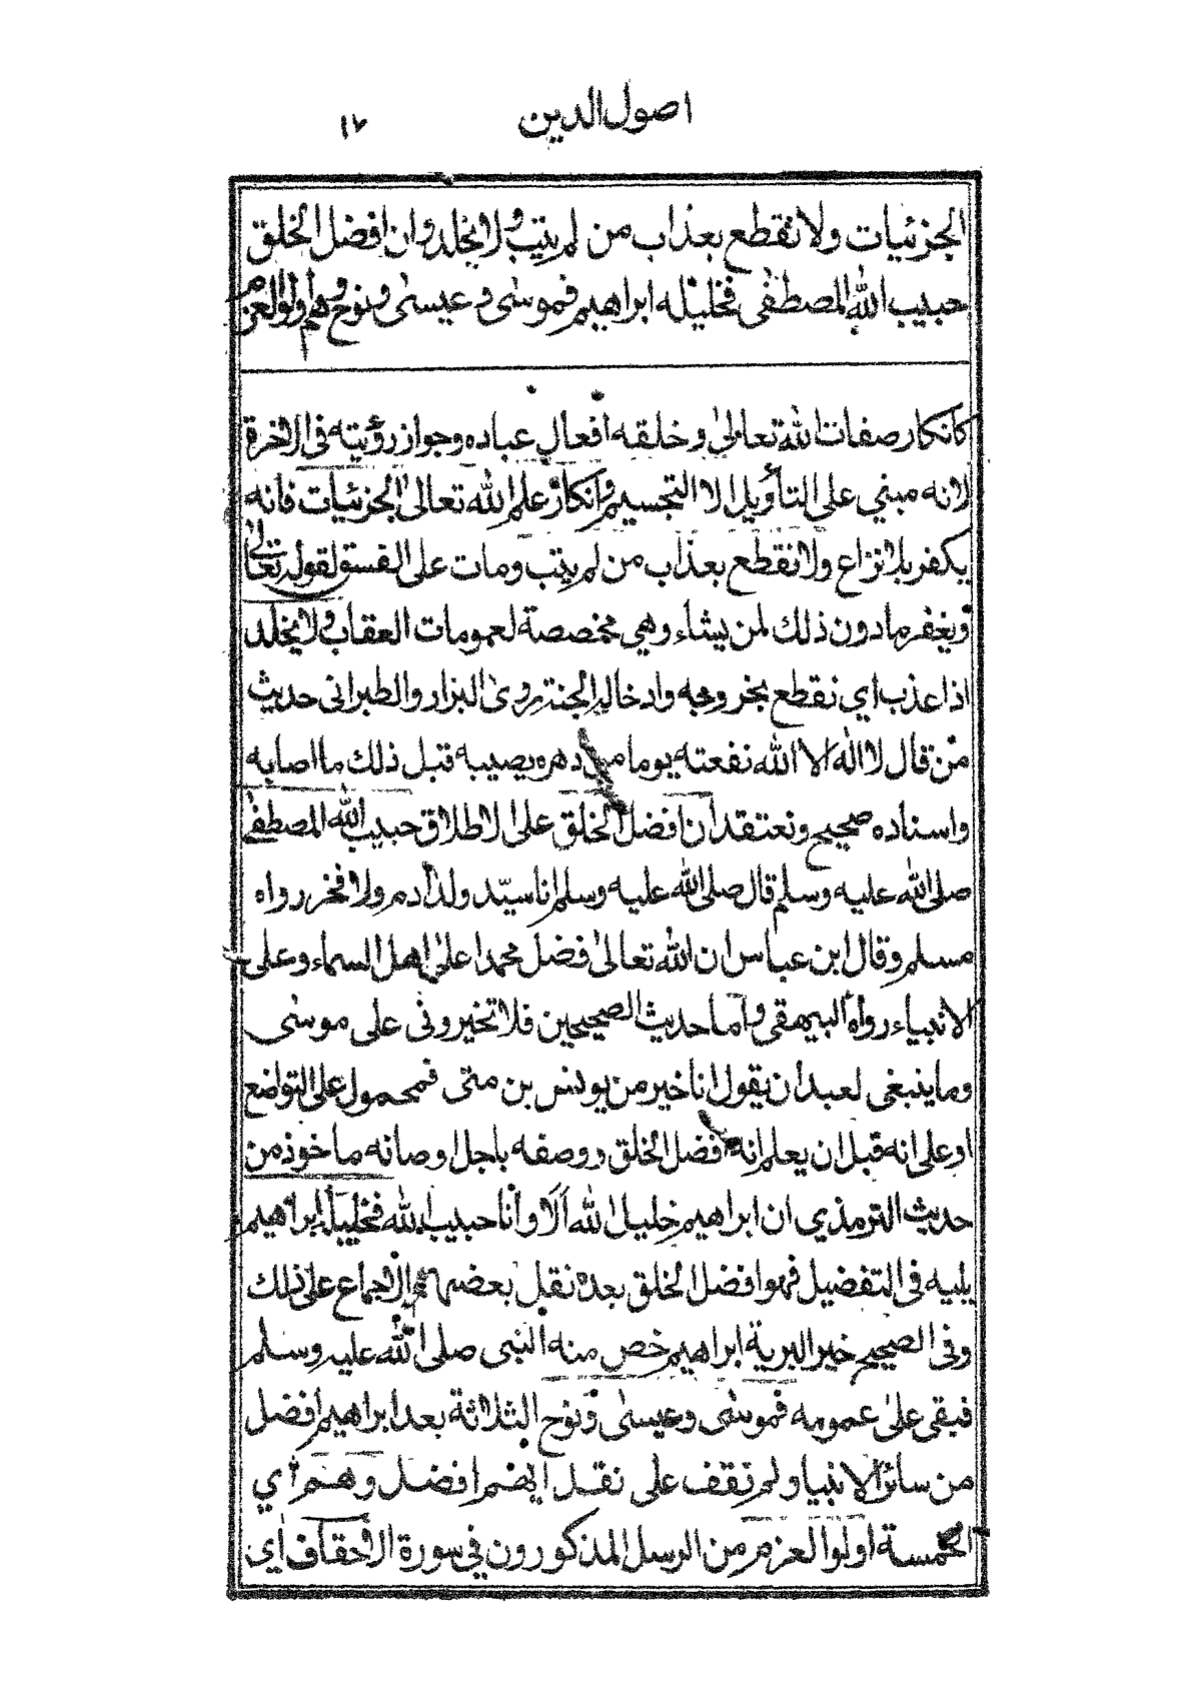 اصول الدين ١٧
الجزئيات ولا نقطع بعذاب من لم يتب ولا يخلد وان افضل الخلق
حبيب الله المصطفى فخليله ابراهيم فموسى وعيسى ونوح وهم اولوا العزم
كانكار صفات الله تعالى وخلقه افعال عباده وجواز رؤيته فى الاخرة
لانه مبني على التأويل الا التجسيم وانكار علم الله تعالى الجزئيات فانه
يكفر بلا نزاع ولا نقطع بعذاب من لم يتب ومات على الفسق لقوله تعالى
ويغفر ما دون ذلك لمن يشاء وهي مخصصة لعمومات العقاب ولا يخلد
اذا عذب اي نقطع بخروجه وادخاله الجنة روى البزار والطبرانى حديث
من قال لا اله الا الله نفعته يوما من دهره يصيبه قبل ذلك ما اصابه
واسناده صحيح ونعتقد ان افضل الخلق على الاطلاق حبيب الله المصطفى
صلى الله عليه وسلم قال صلى الله عليه وسلم انا سيّد ولد آدم ولا فخر رواه
مسلم وقال ابن عباس ان الله تعالى فضل محمدا على اهل السماء وعلى
الانبياء رواه البيهقى واما حديث الصحيحين فلا تخيرونى على موسى
وما ينبغى لعبد ان يقول انا خير من يونس بن متى فمحمول على التواضع
او على انه قبل ان يعلم انه افضل الخلق ووصفه باجل اوصافه ماخوذ من
حديث الترمذي ان ابراهيم خليل الله ألا وأنا حبيب الله فخليله ابراهيم
يليه فى التفضيل فهو افضل الخلق بعده نقل بعضهم الاجماع على ذلك
وفى الصحيح خير البرية ابراهيم خص منه النبى صلى الله عليه وسلم
فبقى على عمومه فموسى وعيسى ونوح الثلاثة بعد ابراهيم افضل
من سائر الانبيا ولم نقف على نقل ايهم افضل وهم أي
الخمسة اولوا العزم من الرسل المذكورون في سورة الاحقاف اي